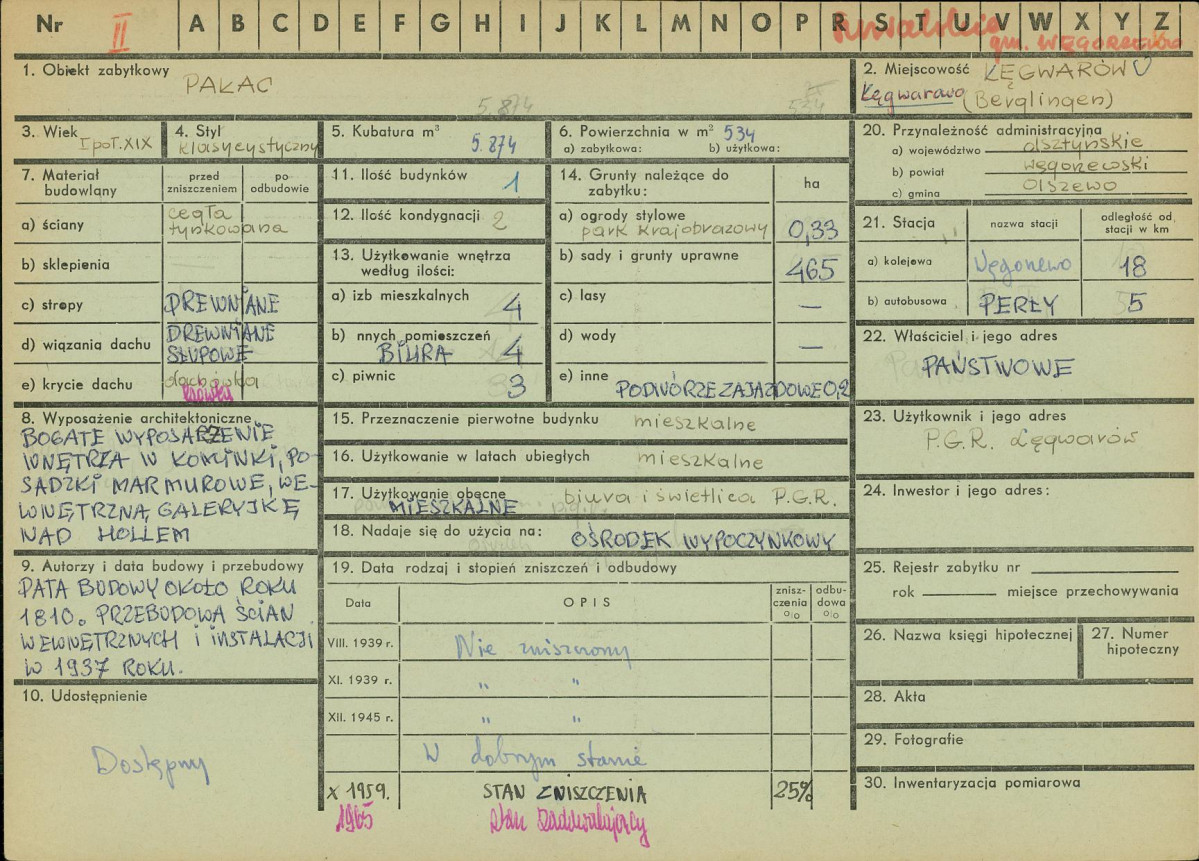 Nr II A B C D E F G H I J K L M N O P R S T U V W X Y Z
gm. WĘGORZEWO
1. Obiekt zabytkowy
PAŁAC
5.874
534
2. Miejscowość ŁĘGWARÓW
Łęgwarowo (Berglingen)
3. Wiek
I poł. XIX
4. Styl
klasycystyczny
5. Kubatura m³
5.874
6. Powierzchnia w m² 534
a) zabytkowa: b) użytkowa:
20. Przynależność administracyjna
a) województwo olsztyńskie
b) powiat węgorzewski
c) gmina Olszewo
7. Materiał budowlany
przed zniszczeniem
po- odbudowie
a) ściany cegła
tynkowana
b) sklepienia —
c) stropy DREWNIANE
d) wiązania dachu DREWNIANE
SŁUPOWE
e) krycie dachu dachówka
11. Ilość budynków 1
12. Ilość kondygnacji 2
13. Użytkowanie wnętrza
według ilości:
a) izb mieszkalnych 4
b) nnych pomieszczeń
BIURA 4
c) piwnic 3
14. Grunty należące do
zabytku:
ha
a) ogrody stylowe
park krajobrazowy 0,33
b) sady i grunty uprawne 465
c) lasy —
d) wody —
e) inne PODWÓRZE ZAJAZDOWE 0,2
21. Stacja
nazwa stacji
odległość od
stacji w km
a) kolejowa Węgorzewo 18
b) autobusowa PERŁY 5
22. Właściciel i jego adres
PAŃSTWOWE
8. Wyposażenie architektoniczne
BOGATE WYPOSARZENIE
WNĘTRZA W KOMINKI, PO-
SADZKI MARMUROWE, WE-
WNĘTRZNĄ GALERYJKĘ
NAD HOLLEM
15. Przeznaczenie pierwotne budynku mieszkalne
16. Użytkowanie w latach ubiegłych mieszkalne
17. Użytkowanie obecne biura i świetlica P.G.R.
MIESZKALNE
18. Nadaje się do użycia na: OŚRODEK WYPOCZYNKOWY
23. Użytkownik i jego adres
P.G.R. Łęgwarów
24. Inwestor i jego adres:
9. Autorzy i data budowy i przebudowy
DATA BUDOWY OKOŁO ROKU
1810. PRZEBUDOWA ŚCIAN
WEWNĘTRZNYCH I INSTALACJI
W 1937 ROKU.
10. Udostępnienie
Dostępny
19. Data rodzaj i stopień zniszczeń i odbudowy
Data
OPIS
znisz-
czenia
%
odbu-
dowa
%
VIII. 1939 r. Nie zniszczony
XI. 1939 r. " "
XII. 1945 r. " "
W dobrym stanie
X 1959. STAN ZNISZCZENIA 25%
1965 stan zadowalający
25. Rejestr zabytku nr
rok miejsce przechowywania
26. Nazwa księgi hipotecznej
27. Numer
hipoteczny
28. Akta
29. Fotografie
30. Inwentaryzacja pomiarowa